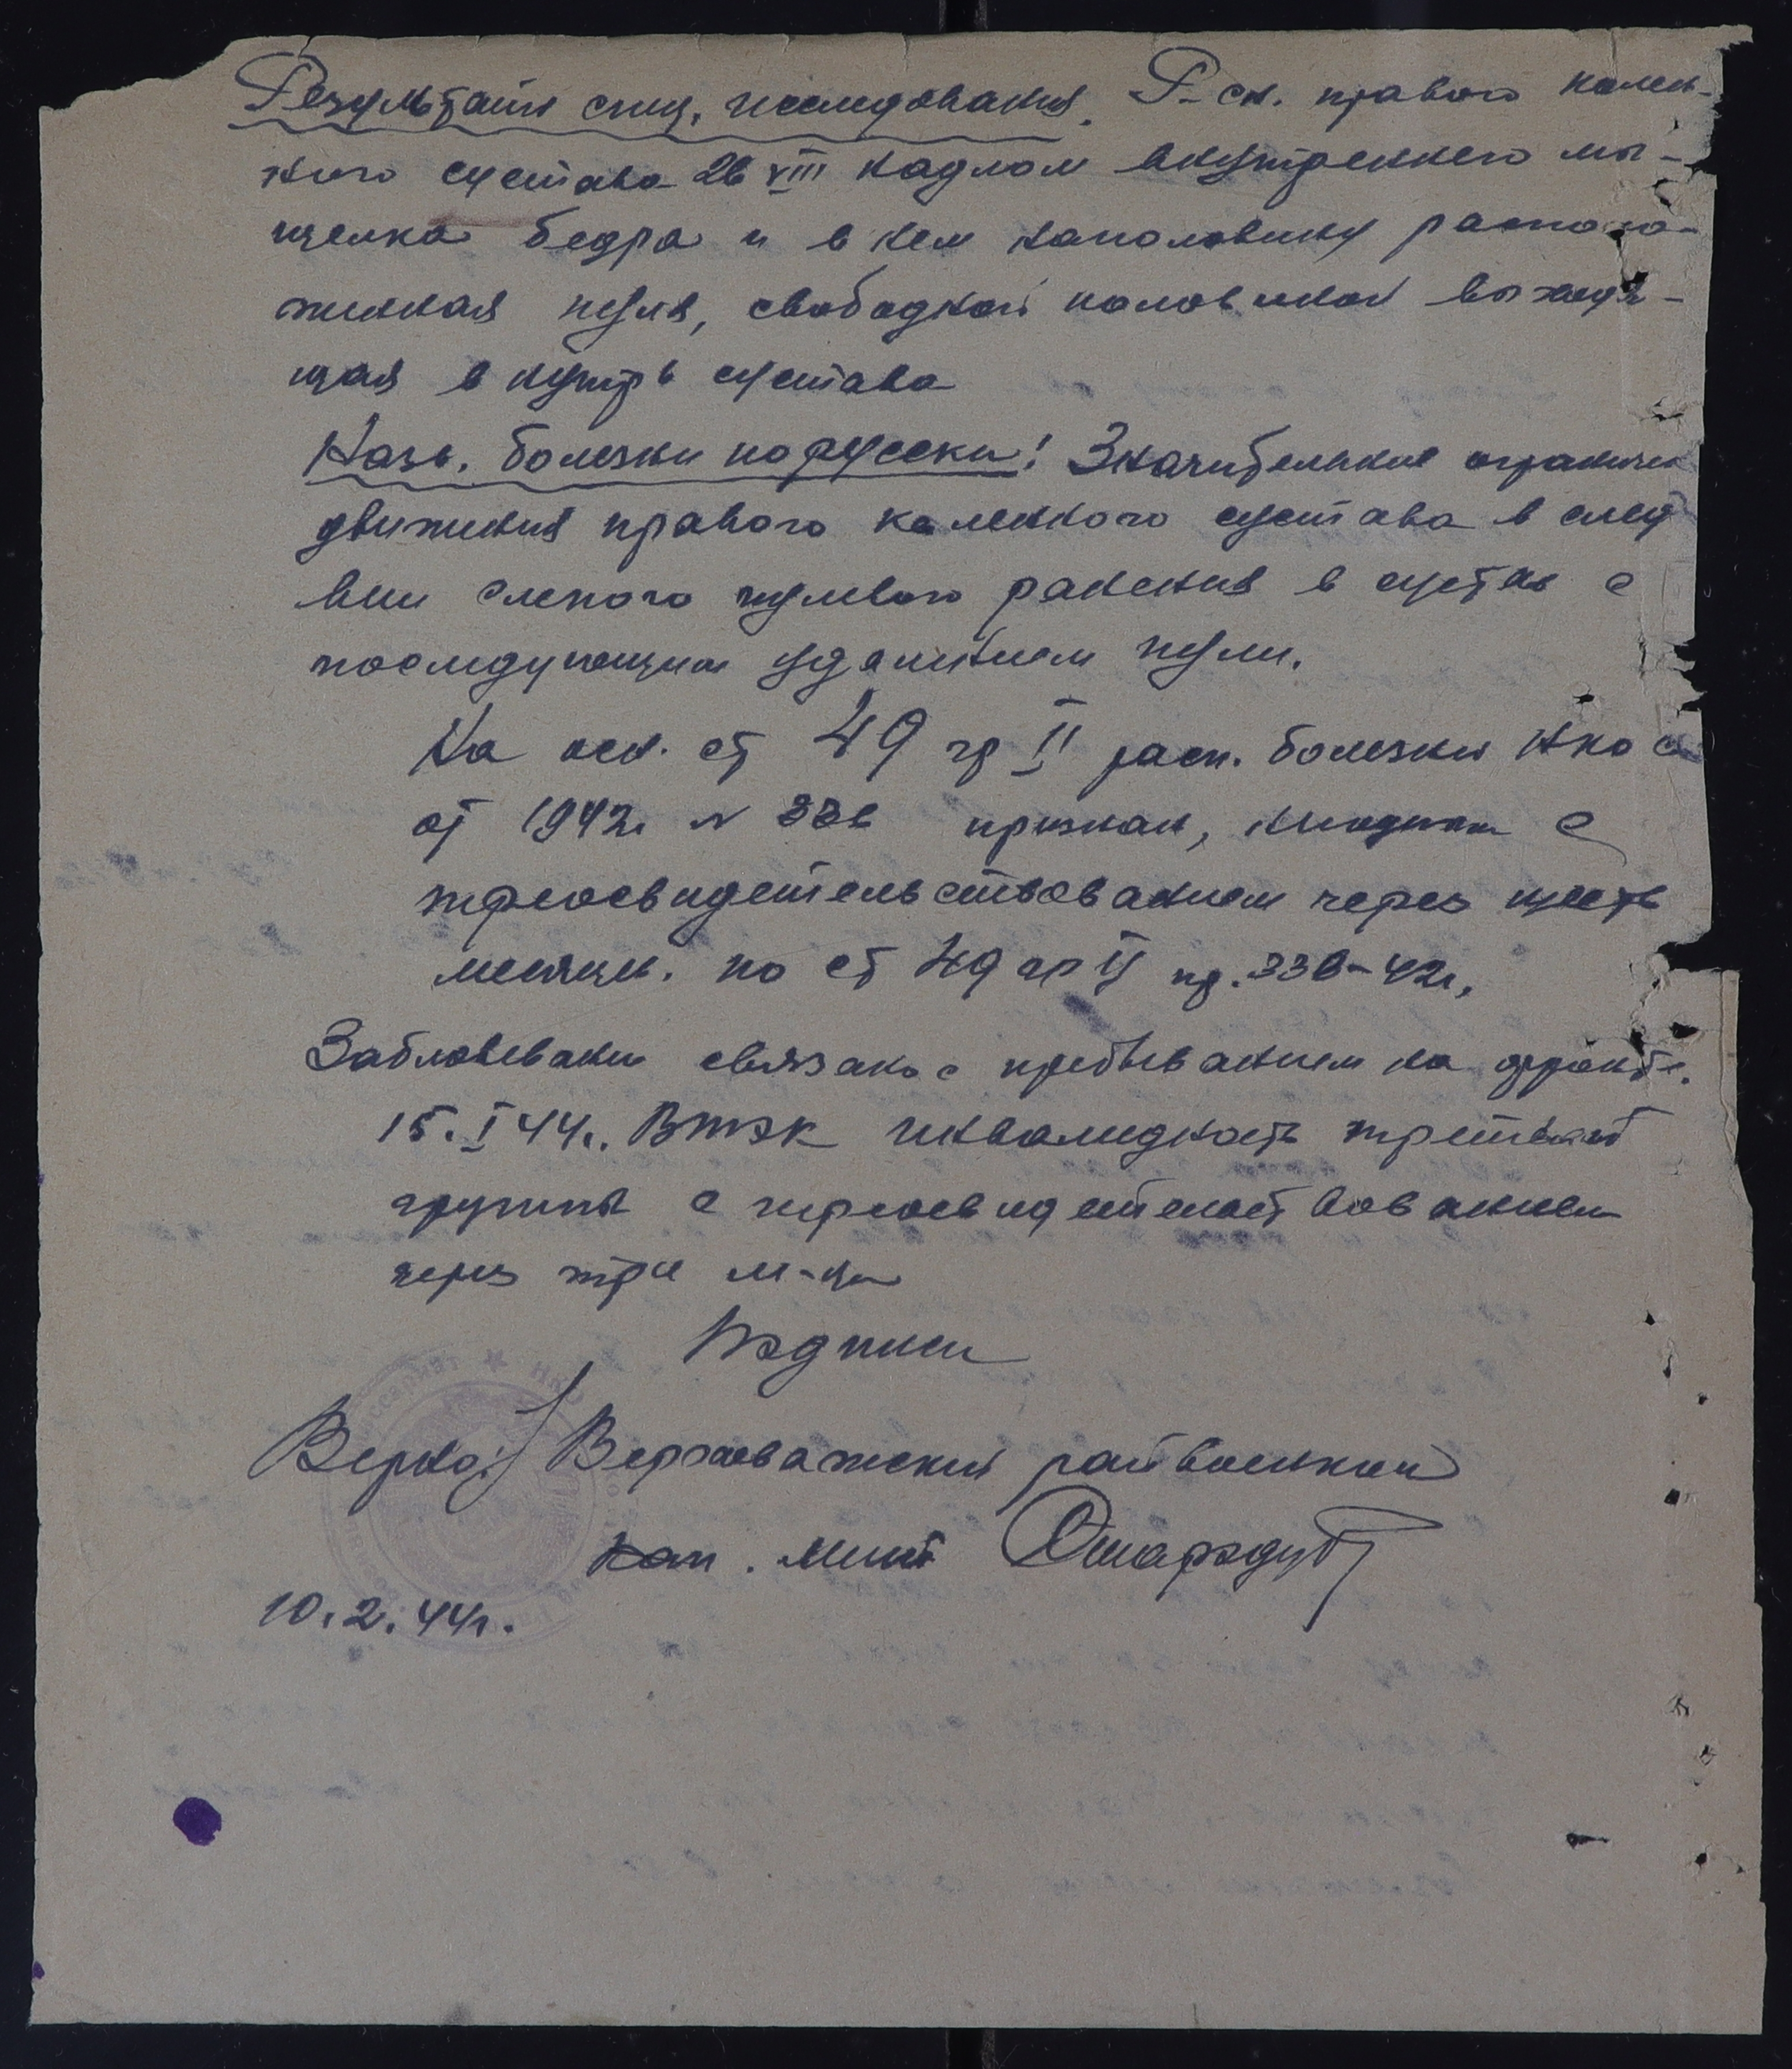 Результаты спец. исследования. Р-ск. правого колен-
ного сустава 26 VIII надлом внутреннего мы-
щелка бедра и в нем наполовину располо-
женная пуля, свободной половиной выходя-
щая внутрь сустава
Назв. болезни по русски: Значительное огранич
движения правого коленного сустава в след
вии слепого пулевого ранения в сустав с
последующим удалением пули.
На осн. ст 49 гр II расп. болезни НКО С
от 1942г. № 336 признан, с
переосвидетельствованием через шесть
месяцев. по ст 49 гр II пр. 336-42г.
Заболевание связано с пребыванием на фронте.
15. I 44г. ВТЭК инвалидность третьей
группы с переосвидетельствованием
через три м-ца
Подписи
Верно: Верховажский райвоенком
кап.
10.2.44г.